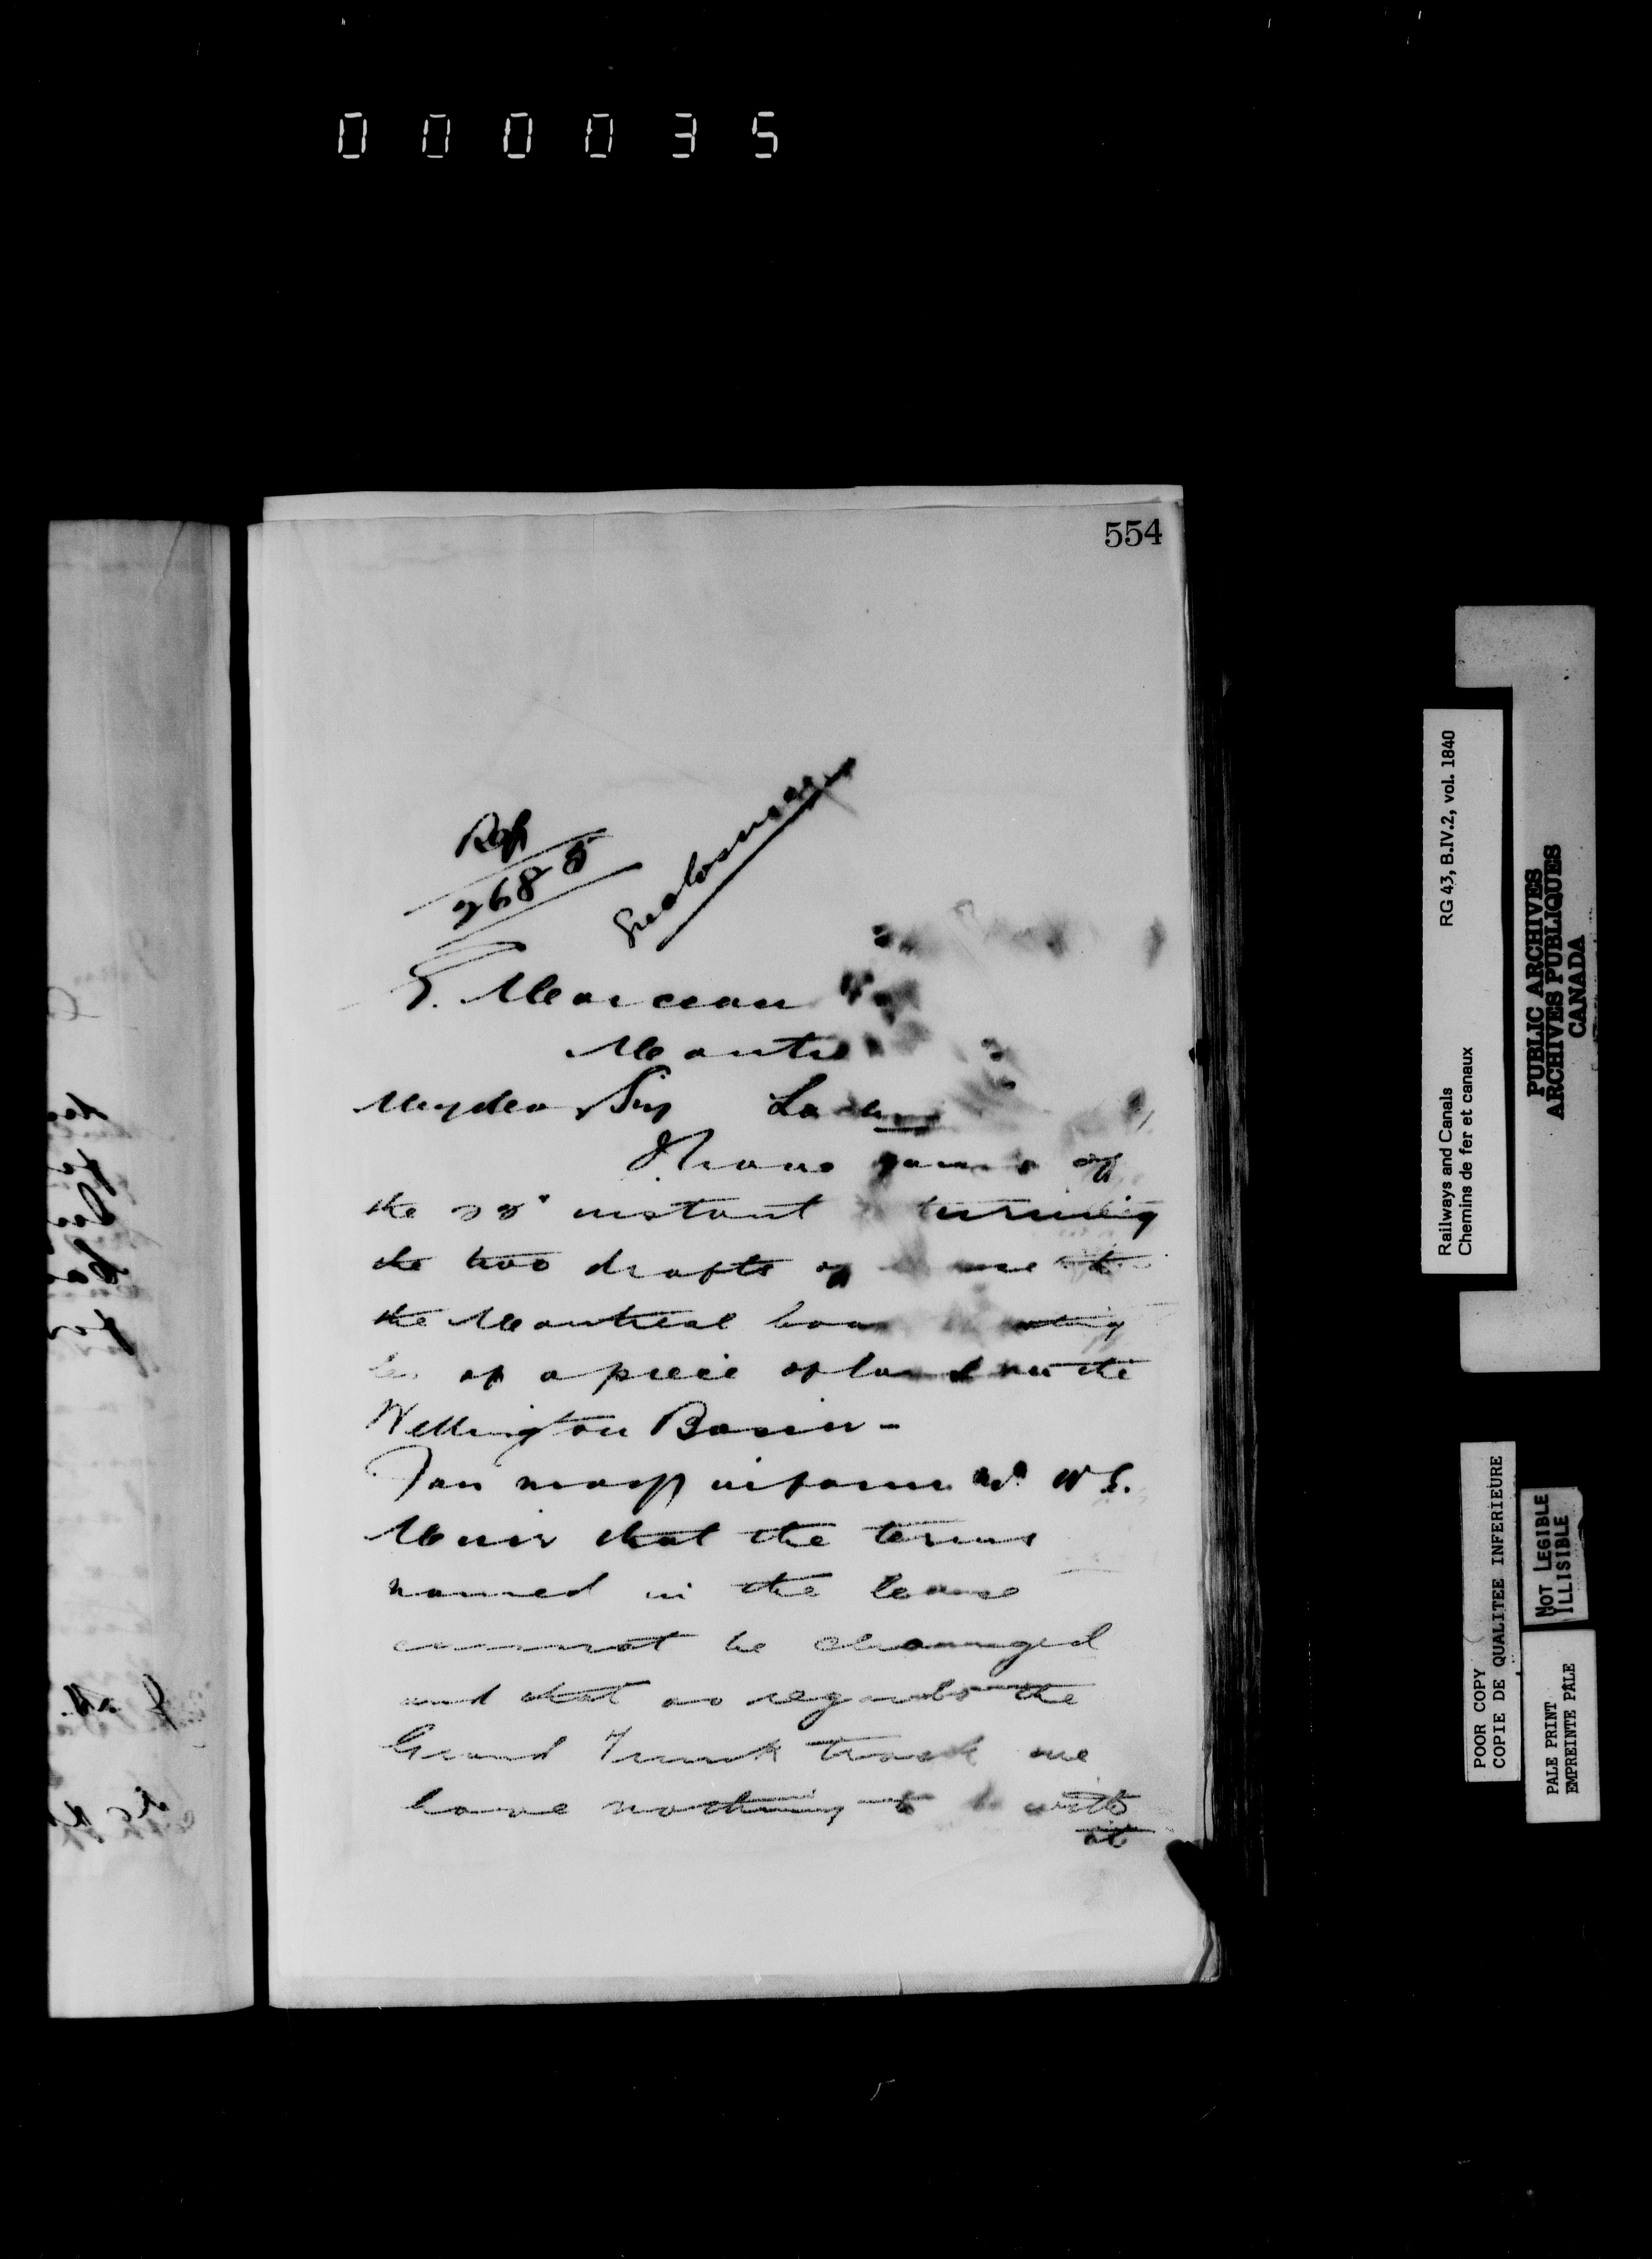 000035
554
Ref
2685
Enclosures
E. Marceau
Montre
My dear Sir
I have yours of
the 28" instant returning
the two drafts of lease to
the Montreal
of a piece of land on the
Wellington Basin -
You may inform Mr W. S.
Muir that the terms
named in the lease
cannot be changed
and that as regards the
Grand Trunk track we
have nothing to do with
it
Railways and Canals RG 43, B.IV.2, vol. 1840
Chemins de fer et canaux
PUBLIC ARCHIVES
ARCHIVES PUBLIQUES
CANADA
POOR COPY
COPIE DE QUALITEE INFERIEURE
NOT LEGIBLE
ILLISIBLE
PALE PRINT
EMPREINTE PÂLE